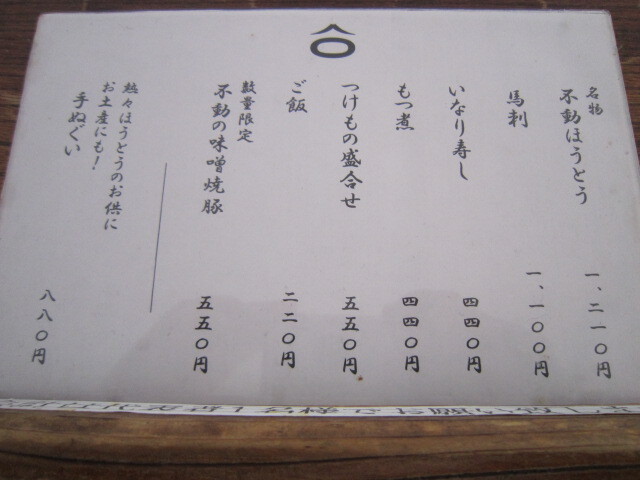 名物
不動ほうとう
一、二一〇円
馬刺
一、一〇〇円
いなり寿し
四四〇円
もつ煮
四四〇円
つけもの盛合せ
五五〇円
ご飯
二二〇円
数量限定
不動の味噌焼豚
五五〇円
熱々ほうとうのお供に
お土産にも!
手ぬぐい
八八〇円
名様でお願い致しま